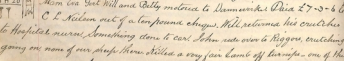 Mem Eva Gert Will and Betty motored to Paid £7-3-6 to
C L Nelson out of a ten pound cheque. Will returned his crutches
to Hospital Nurse. Something done to car. John rode over to Riggers, crutching
going on none of our sheep there. Killed a very fair Lamb off turnips - one of the